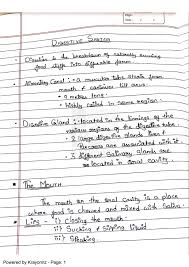 Page:
Date:
DIGESTIVE SYSTEM
Digestion is the breakdown of naturally occuring
food stuffs into digestible form.
Alimentary Canal :- a muscular tube starts from
mouth & continues till anus.
9 metres long.
Widely coiled in some region.
Digestive Gland :- located in the linnings of the
various regions of the digestive tube.
2 large digestive glands liver &
Pancreas are associated with it.
3 different Salivary Glands are
located in oral cavity.
THE MOUTH
The mouth or the oral cavity is a place
where food is chewed and mixed with saliva.
Lips i) Closing the mouth
ii) Sucking & sipping liquid
iii) Speaking.
Powered by Krayonnz - Page: 1